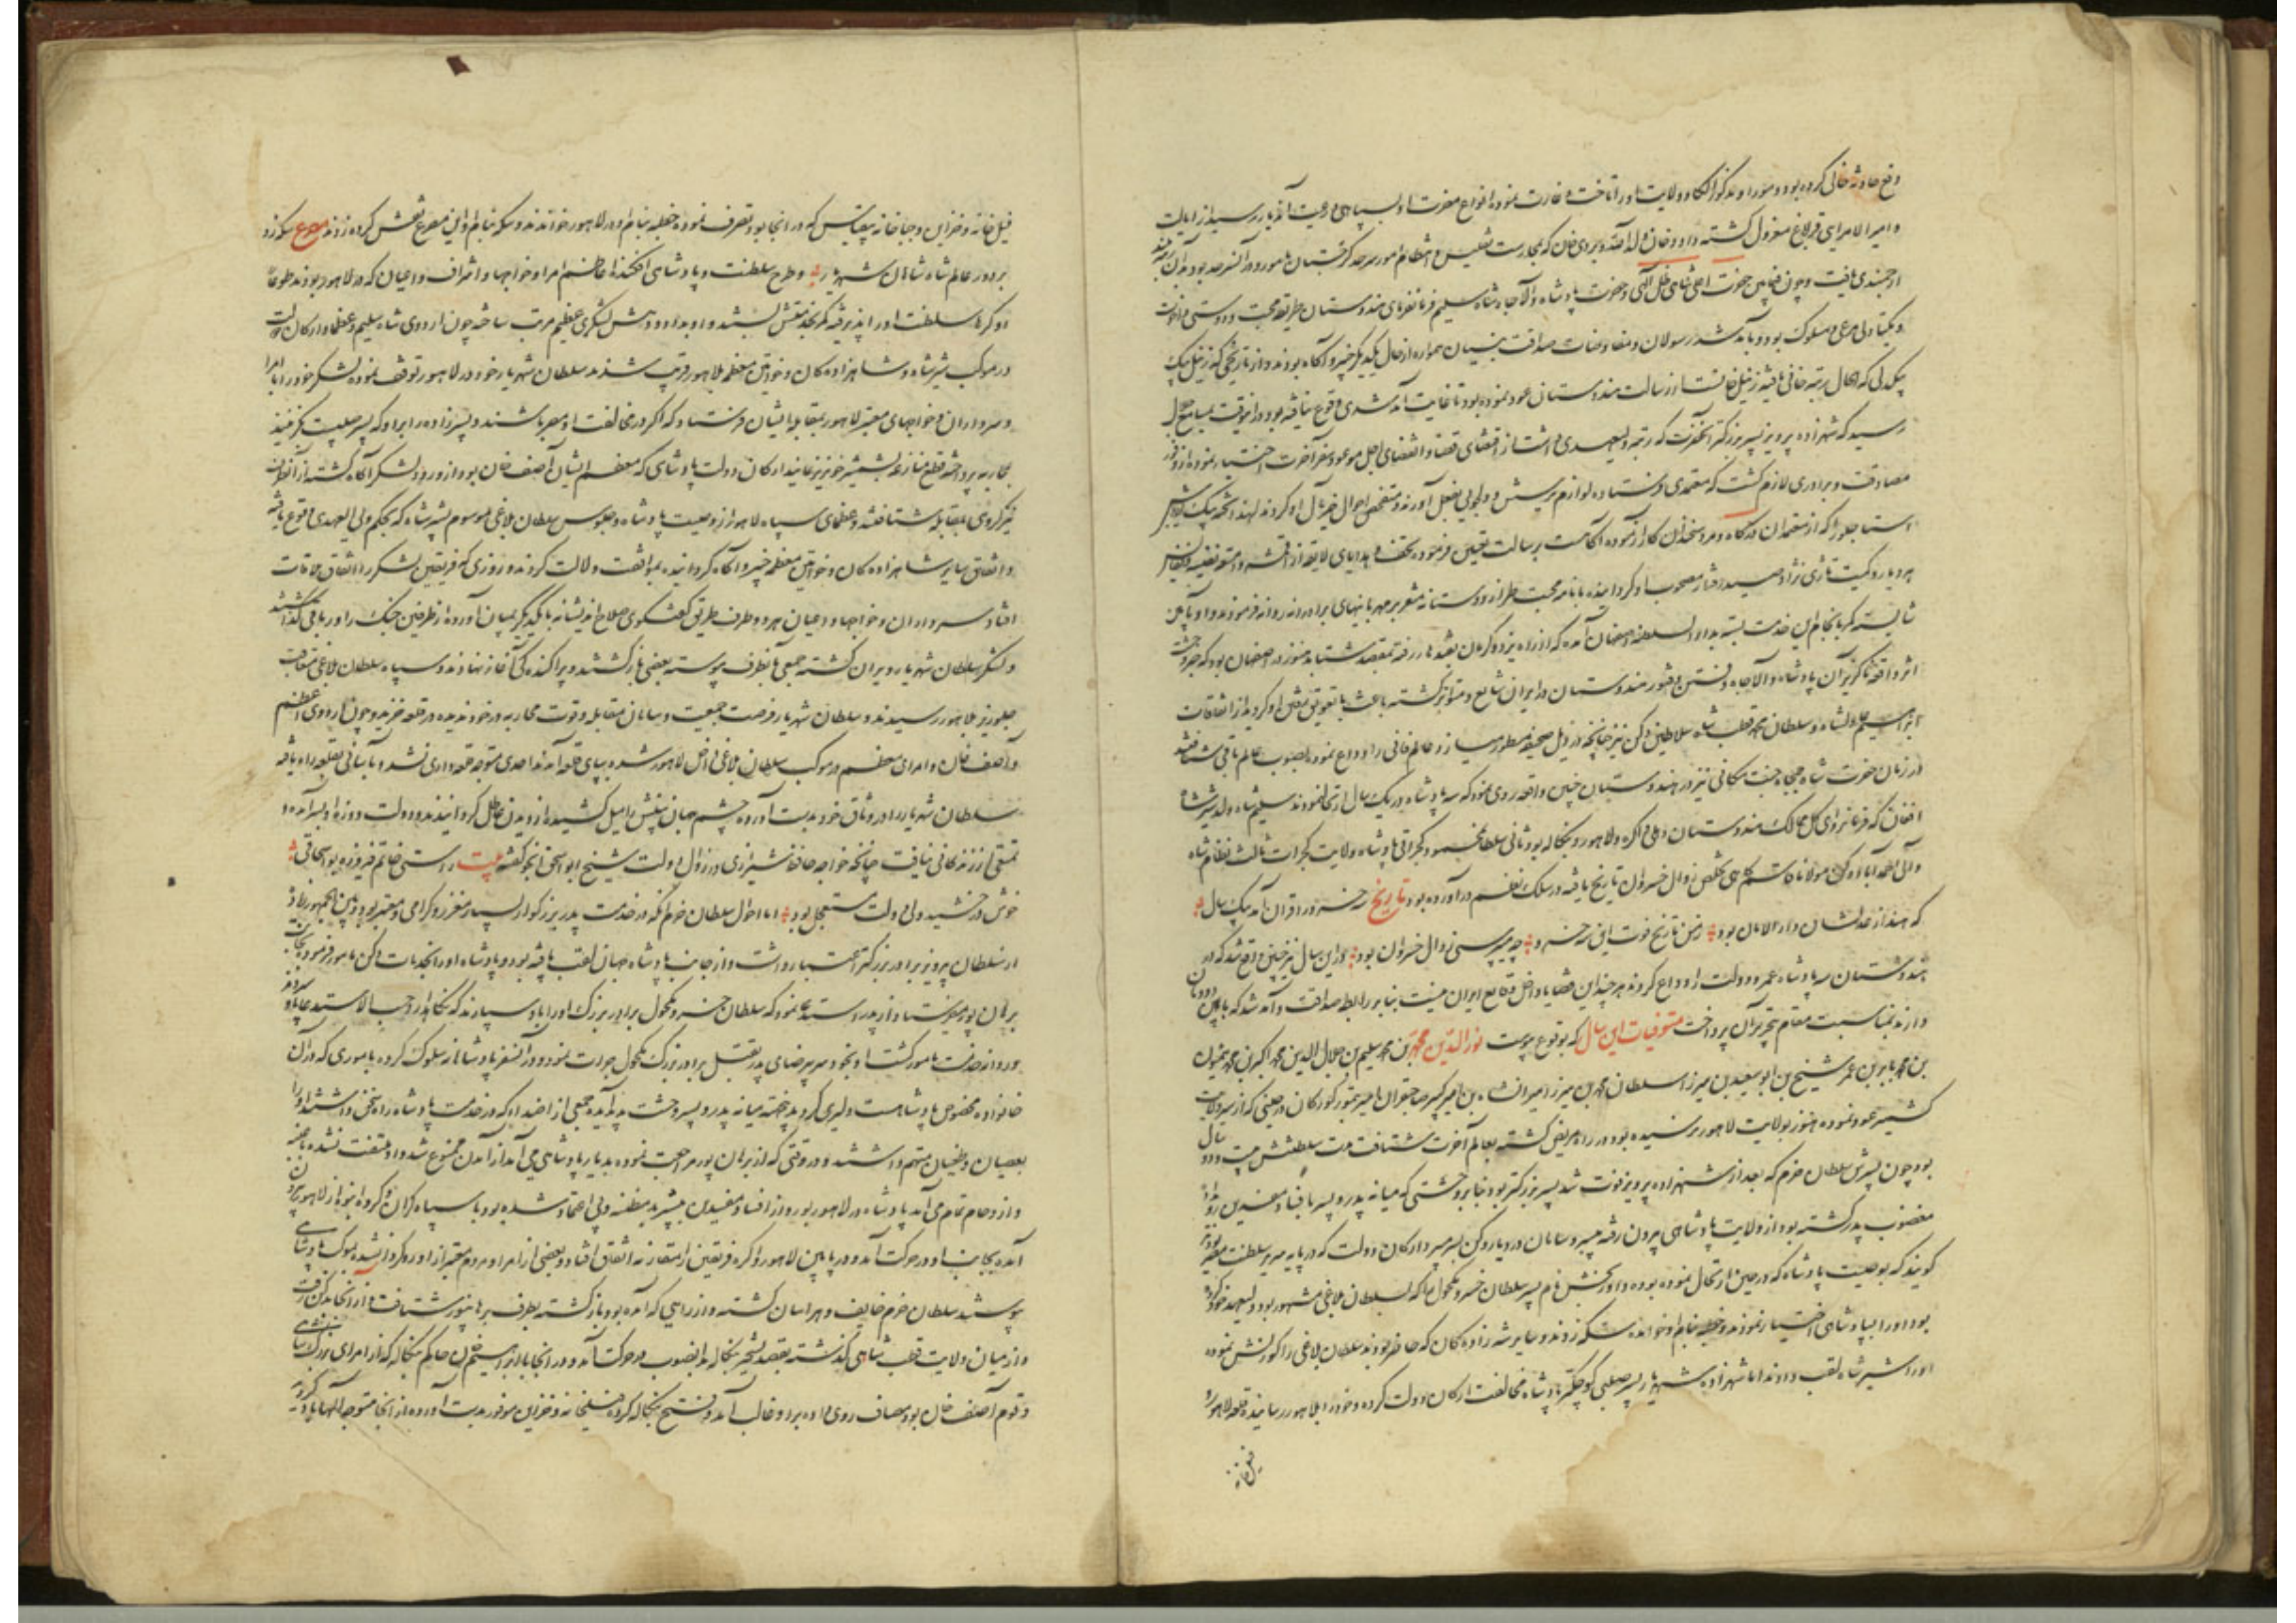 دفع حادثه خالی کرده بود و مورا و مذکور الکاء و ولایت او را تاخت و غارت نموده انواع مضرت او بسپاهی و رعیت آندیار رسید از ایالت
و امیر الامرایی قراباغ معزول گشته داود خان ولد الله ویردی خان که بحارست تفلیس و انتظام امور سرحد گرجستان مامور و در آنسرحد بود بدان رتبه
ارجمندی یافت و چون فیمابین حضرت اعلی شاهی ظل اللهی و حضرت پادشاه والا جاه شاه سلیم فرمانفرمای هندوستان طریقه محبت و دوستی و اخوت
و یکتادلی مرعی و مسلوک بود و بآمد شد رسولان و مفاوضات صداقت بنیان همواره از حال یکدیگر خبیر و آگاه بودند و از تاریخی که زنیل بیک
بیکدلی که الحال برتبه خانی یافته زنیل خانست از رسالت هندوستان عود نموده بود تا غایت آمد شدی وقوع نیافته بود در اینوقت بمسامع جلال
رسید که شهزاده پرویز پسر بزرگتر آنحضرت که رتبه ولیعهدی داشت از اقتضای قضا و انقضای اجل موعود سفر آخرت اختیار نموده از وفور
مصادقت و برادری لازم گشت که معتمدی فرستاده لوازم پرسش و دلجویی بفعل آورند و متفحص احوال خیر مآل او گردند لهذا تخته بیک یوزباشی
استاجلو را که از معتمدان درگاه و مرد سخندان کار آزموده آگاهست برسالت تعیین فرموده تحف و هدایای لایقه از اقمشه و امتعه نفیسه
هر دیار و کمیت تازی نژاد صبا رفتار مصحوب او گردانیده با نامه محبت طراز دوستانه مشعر بر مهربانیهای برادرانه روانه فرمودند و او
شایسته کمر بانجام این خدمت بسته بدار السلطنه اصفهان آمده که از راه یزد و کرمان بقندهار رفته بمقصد شتابد هنوز در اصفهان بود که خبر وحشت
اثر واقعه ناگزیر آن پادشاه والا جاه و فتن و فتور هندوستان در ایران شایع و متواتر گشته باعث تعویق رفتن او گردید از اتفاقات
ابراهیم عادلشاه و سلطان محمد قطب شاه سلاطین دکن نیز چنانچه در ذیل صحیفه مسطور میسازد عالم فانی را وداع نموده بصوب عالم باقی شتافتند
در زمان حضرت شاه جمجاه جنت مکانی نیز در هندوستان چنین واقعه روی نمود که سه پادشاه در یک سال ارتحال نمودند سلیم شاه ولد شیر شاه
افغان که فرمانروای کل ممالک هندوستان دهلی و اگره و لاهور و بنگاله بود ثانی سلطان محمود گجراتی پادشاه ولایت گجرات ثالث نظام شاه
والی احمد آباد دکن مولانا قاسم کاهی بتخلص زوال خسروان تاریخ یافته در سلک نظم در آورده بود تاریخ سه خسرو را قران آمد بیک سال
که هند از عدلشان دار الامان بود زمن تاریخ فوت این سه خسرو چه میپرسی زوال خسروان بود در این سال نیز چنین واقع شد که در
هندوستان سه پادشاه عمر و دولت را وداع کردند هر چند این قضایا داخل وقایع ایران نیست بنا بر رابطه صداقت و آمد شد که با این دودمان
دارند بمناسبت مقام بتحریر آن پرداخت متوفیات این سال که بوقوع پیوست نور الدین محمد بن محمد سلیم بن جلال الدین محمد اکبر بن محمد همایون
بن محمد بابر بن عمر شیخ بن ابو سعید بن میرزا سلطان محمد بن میرزا میرانشاه بن امیر کبیر صاحبقران امیر تیمور گورکان در حینی که از سیر ولایت
کشمیر عود نموده هنوز بولایت لاهور نرسیده بود در راه مریض گشته بعالم آخرت شتافت مدت سلطنتش بیست و دو سال
بود چون پسرش سلطان خرم که بعد از شهزاده پرویز فوت شد پسر بزرگتر بود بنا بر وحشتی که میانه پدر و پسر بافساد مفسدین
مغضوب پدر گشته بود از ولایت پادشاهی بیرون رفته بی سر و سامان در دیار دکن بسر میبرد ارکان دولت که در پایه سریر سلطنت مصیر بودند
گویند که بوصیت پادشاه که در حین ارتحال نموده بوده داور بخش نام پسر سلطان خسرو مکحول را که بسلطان بلاغی مشهور بود و ولیعهد خود کرده
بود او را بپادشاهی اختیار نمودند و خطبه بنام او خوانده سکه زدند و سایر شه زاده‌گان که حاضر بودند سلطان بلاغی را کورنش نموده
او را شیر شاه لقب دادند اما شهزاده شهریار پسر صلبی کوچکتر پادشاه مخالفت ارکان دولت کرده خود را بلاهور رسانید و قلعه لاهور و
فیلخانه
فیل خانه و خزاین و جباخانه بیقیاس که در انجا بود تصرف نموده خطبه بنام او در لاهور خواندند و سکه بنام او این مصرع نقش کرده زدند مصرع سکه زد
بر دور عالم شاه شاهان شهریار و طرح سلطنت و پادشاهی افکنده اعاظم امرا و خواجها و اشراف و اعیان که در لاهور بودند طوعاً
او کرهاً سلطنت او را پذیرفته کمر بخدمتش بستند و او بداد و دهش لشکری عظیم مرتب ساخته چون اردوی شاه سلیم و عظما و ارکان دولت
در موکب شیر شاه و شاهزاده گان و خواتین معظمه بلاهور قریب شدند سلطان شهریار خود در لاهور توقف نموده لشکر خود را با امرا
و سرداران و خواجهای معتبر لاهور بمقابله ایشان فرستاد که اگر در مخالفت او مصر باشند و پسر زاده را برادر که پسر صلبیست گزینند
بمحاربه پرداخته قطع منازعه بشمشیر خونریز نمایند ارکان دولت پادشاهی که معظم ایشان آصف خان بود از ورود لشکر آگاه گشته از آنطرف
نیز گروهی بمقابله شتافتند و عظمای سپاه لاهور از وصیت پادشاه و جلوس سلطان بلاغی موسوم بشیر شاه که بحکم ولی العهدی وقوع یافته
و اتفاق سایر شاهزاده گان و خواتین معظمه خبیر و آگاه گردانیده بموافقت دلالت کردند و روزی که فریقین لشکر را اتفاق ملاقات
افتاد سرداران و خواجها و اعیان هر دو طرف طریق گفتگوی صلاح اندیشانه با یکدیگر بمیان آورده از طرفین جنگ را در باقی گذاشتند
و لشکر سلطان شهریار ویران گشته جمعی بآنطرف پیوسته بعضی باز گشتند و پراکنده گی آغاز نهادند و سپاه سلطان بلاغی متعاقب
جلوریز بلاهور رسیدند و سلطان شهریار فرصت جمعیت و سامان مقابله و قوت محاربه در خود ندیده در قلعه خزید و چون اردوی اعظم
و آصف خان و امرای معظم در موکب سلطان بلاغی داخل لاهور شده بپای قلعه آمدند احدی متوجه قلعه داری نشد و بآسانی بقلعه راه یافته
سلطان شهریار را در وثاق خود بدست آورده چشم جهان بینش را میل کشیده از دیدن عاطل گردانیدند و دولت دو روزه او بسر آمده
تمتعی از زندگانی نیافت چنانچه خواجه حافظ شیرازی در زوال دولت شیخ ابو اسحق اینجو گفته بیت راستی خاتم فیروزه بو اسحاقی
خوش درخشید ولی دولت مستعجل بود اما احوال سلطان خرم آنکه در خدمت پدر بزرگوار بسیار معزز و گرامی و معتبر بود
از سلطان پرویز برادر بزرگتر اعتبار داشت و از جانب پادشاه جهان لقب یافته بود و پادشاه او را بخدمات دکن مامور فرموده بجانب
برهان پور میفرستاد از پدر استدعا نمود که سلطان خسرو مکحول برادر بزرگ او را باو سپارند که نگاهدارد حسب الاستدعا باو سپردند
و در آن خدمت مامور گشت او بخود سر بی رضای پدر بقتل برادر بزرگ مکحول جرات نمود و در آنسفر پادشاهانه سلوک کرده باموری که در آن
خانواده مخصوص پادشاهست دلیری کرد بدینجهت میانه پدر و پسر وحشت پدید آمده جمعی از اضداد که در خدمت پادشاه راه سخن داشتند او را
بعصیان و طغیان متهم داشتند و در وقتی که از برهان پور مراجعت نموده بدیار پادشاهی می آمد از آمدن ممنوع شد و او ملتفت نشده
و ازدحام تمام می آمد پادشاه در لاهور بود و از افساد مفسدین بپسر بد مظنه و بی اعتماد شده بود با سپاه گران و گروه انبوه از لاهور بیرون
آمده بجانب او در حرکت آمد و در مابین لاهور و اگره فریقین را متقارنه اتفاق افتاد و بعضی از امرا و مردم معتبر از او روگردان شده بموکب پادشاهی
پیوستند سلطان خرم خایف و هراسان گشته و از راهی که آمده بود باز گشته بطرف برهانپور شتافت و از انجا بدکن رفت
و از میان ولایت قطب شاهی گذشته بقصد تسخیر بنگاله بدانصوب در حرکت آمد و در انجا با ابراهیم خان حاکم بنگاله که از امرای بزرگ شاهی
و قوم آصف خان بود مصاف روی داده بر او غالب آمد و فتح بنگاله کرده فیلخانه و خزاین موفور بدست آورده از انجا متوجه الهاباد